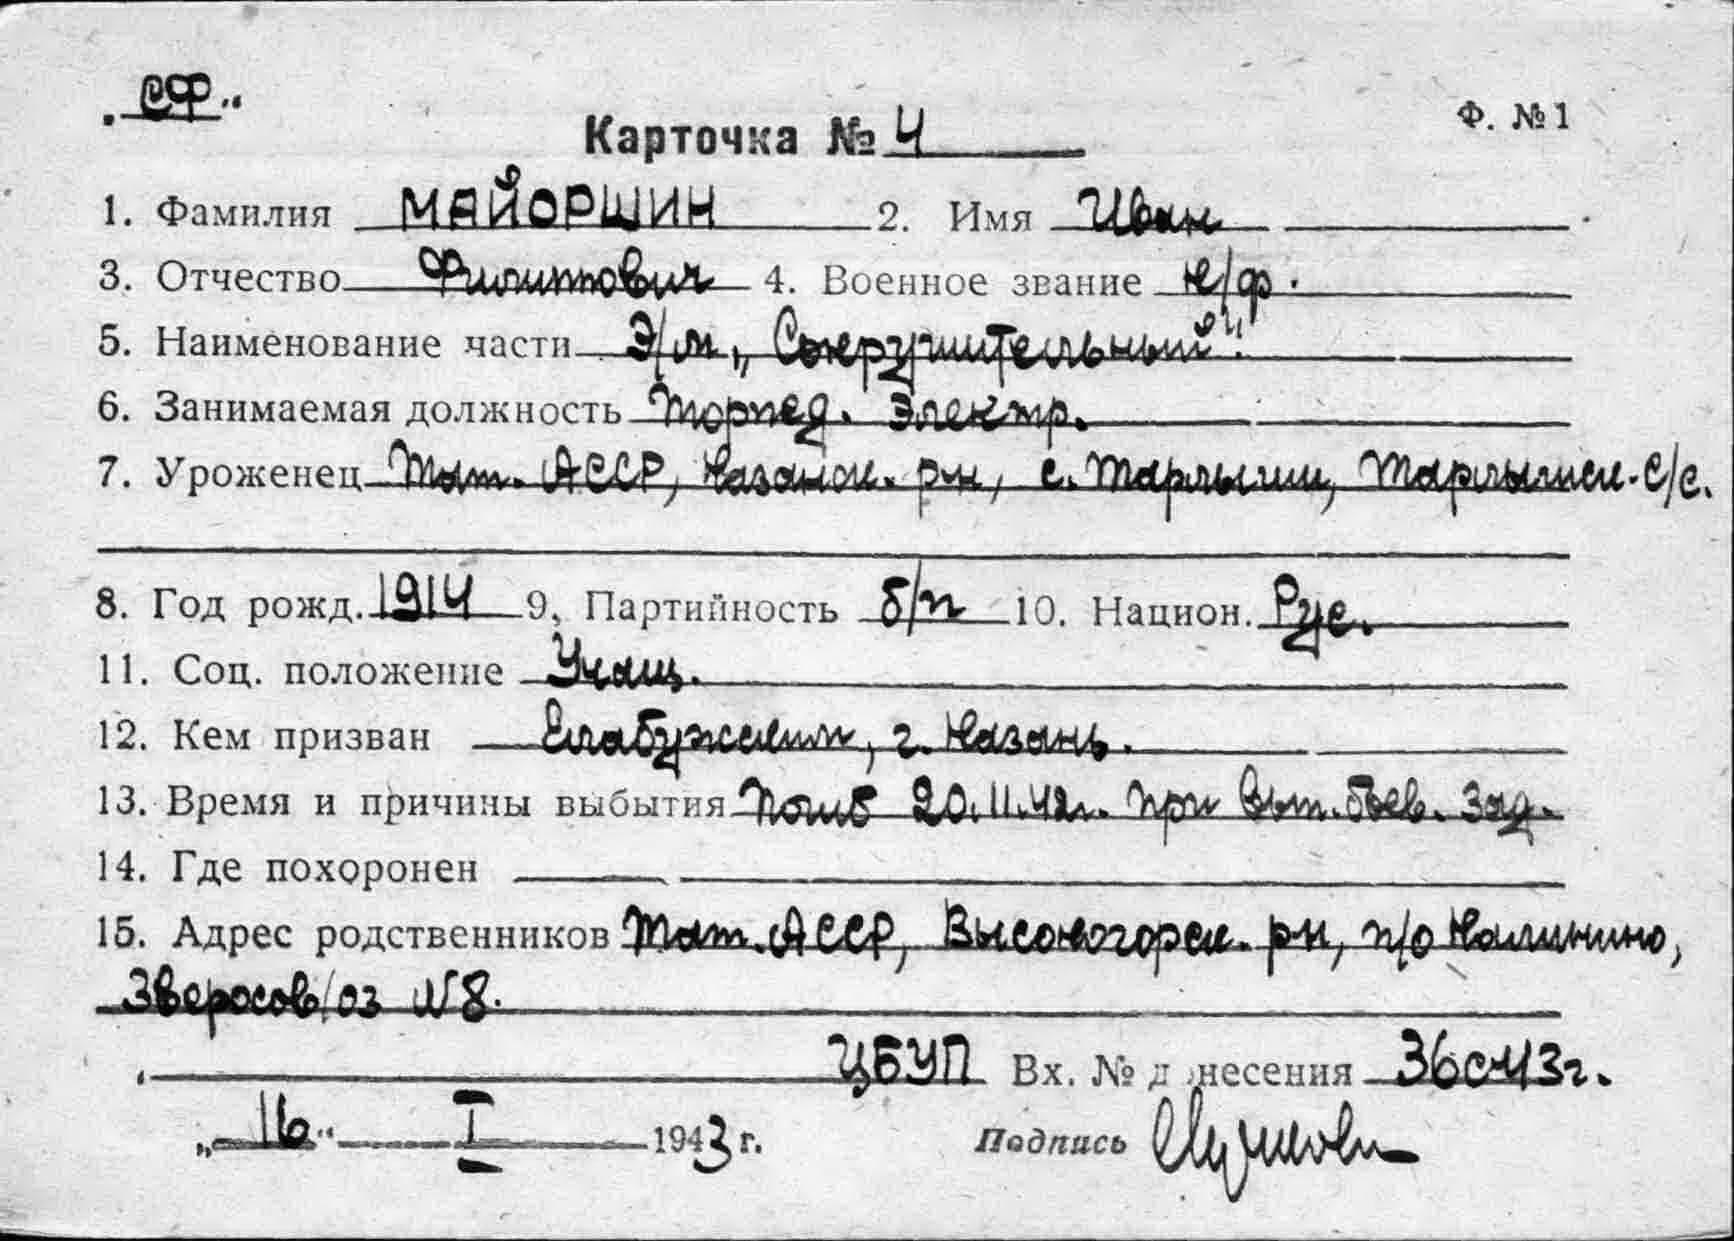 „СФ“
Ф. №1
Карточка № 4
1. Фамилия МАЙОРШИН 2. Имя Иван
3. Отчество Филиппович 4. Военное звание к/ф.
5. Наименование части Э/м „Сокрушительный“.
6. Занимаемая должность Торпед. Электр.
7. Уроженец Тат. АССР, Казанск. р-н, с.
8. Год рожд. 1914 9. Партийность б/п 10. Национ. Рус.
11. Соц. положение Учащ.
12. Кем призван Елабужским, г. Казань.
13. Время и причины выбытия Погиб 20.11.42г. при вып. боев. зад.
14. Где похоронен
15. Адрес родственников Тат. АССР, Высокогорск. р-н, п/о Калинино,
Зверосов/оз №8.
ЦБУП Вх. № д несения 36с-43г.
„16“ I 1943 г. Подпись